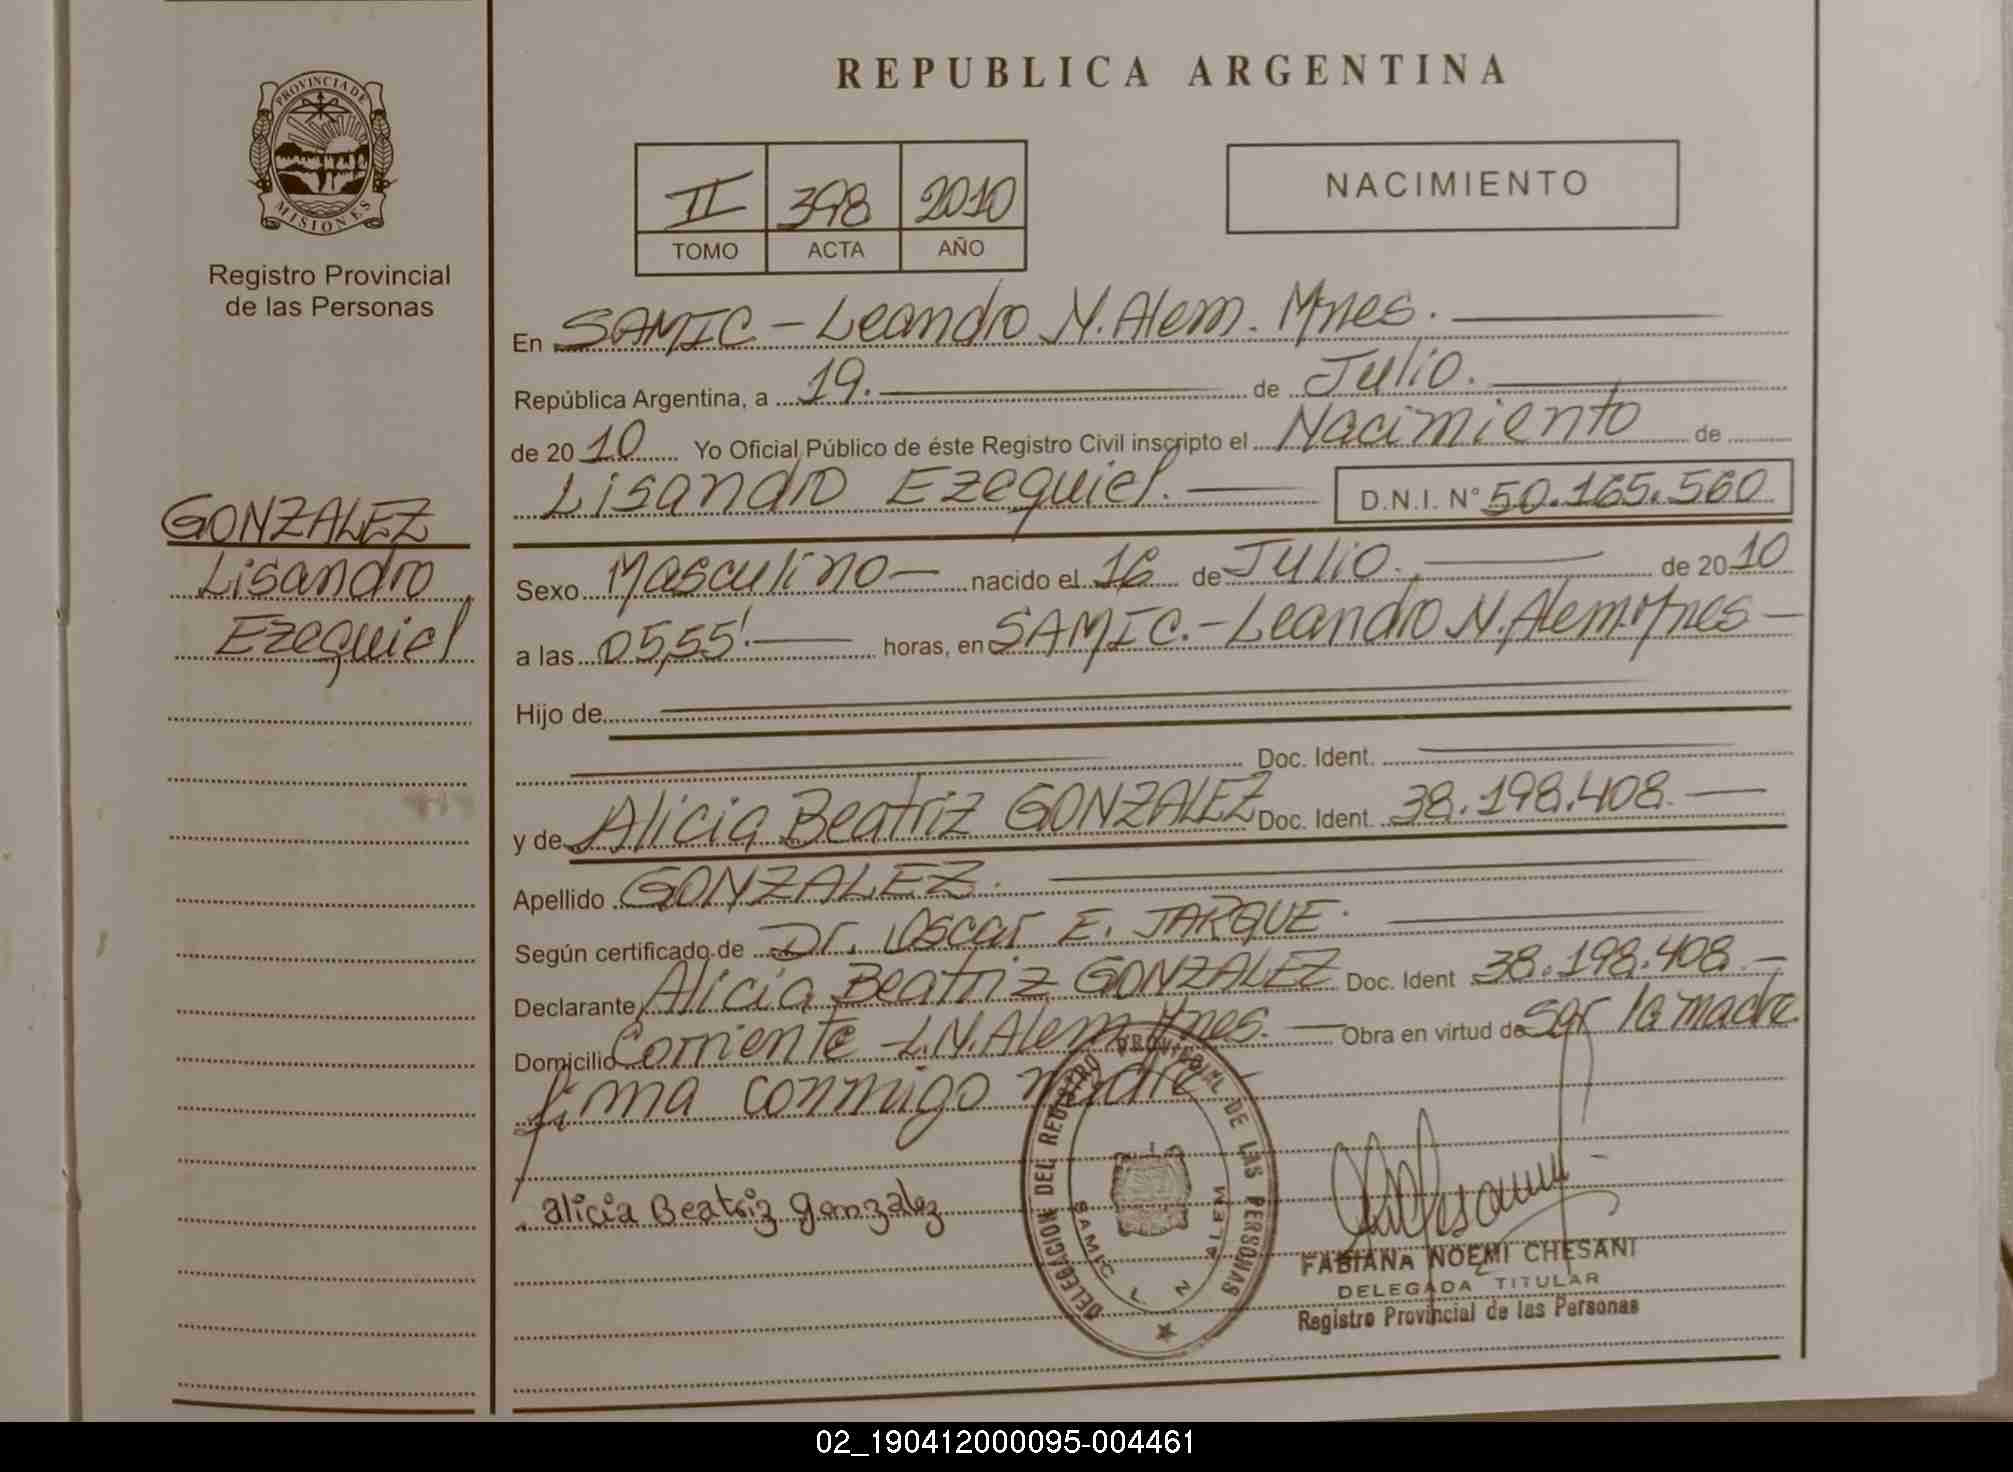 REPUBLICA ARGENTINA
PROVINCIA DE
MISIONES
Registro Provincial
de las Personas
II 398 2010
TOMO ACTA AÑO
NACIMIENTO
En SAMIC - Leandro N. Alem. Mnes.
República Argentina, a 19. de Julio.
de 2010 Yo Oficial Público de éste Registro Civil inscripto el Nacimiento de
Lisandro Ezequiel. D.N.I. N° 50.165.560
GONZALEZ
Lisandro
Ezequiel
Sexo Masculino - nacido el 16 de Julio. de 2010
a las 05,55'. horas, en SAMIC. - Leandro N. Alem. Mnes -
Hijo de
Doc. Ident.
y de Alicia Beatriz GONZALEZ Doc. Ident. 38.198.408. -
Apellido GONZALEZ.
Según certificado de Dr. Oscar E. JARQUE.
Declarante Alicia Beatriz GONZALEZ Doc. Ident 38.198.408. -
Domicilio Corriente - L.N. Alem Mnes. - Obra en virtud de ser la madre
firma conmigo madre -
Alicia Beatriz gonzalez
DELEGACION DEL REGISTRO PROVINCIAL DE LAS PERSONAS
SAMIC L N ALEM
FABIANA NOEMI CHESANI
DELEGADA TITULAR
Registro Provincial de las Personas
02_190412000095-004461